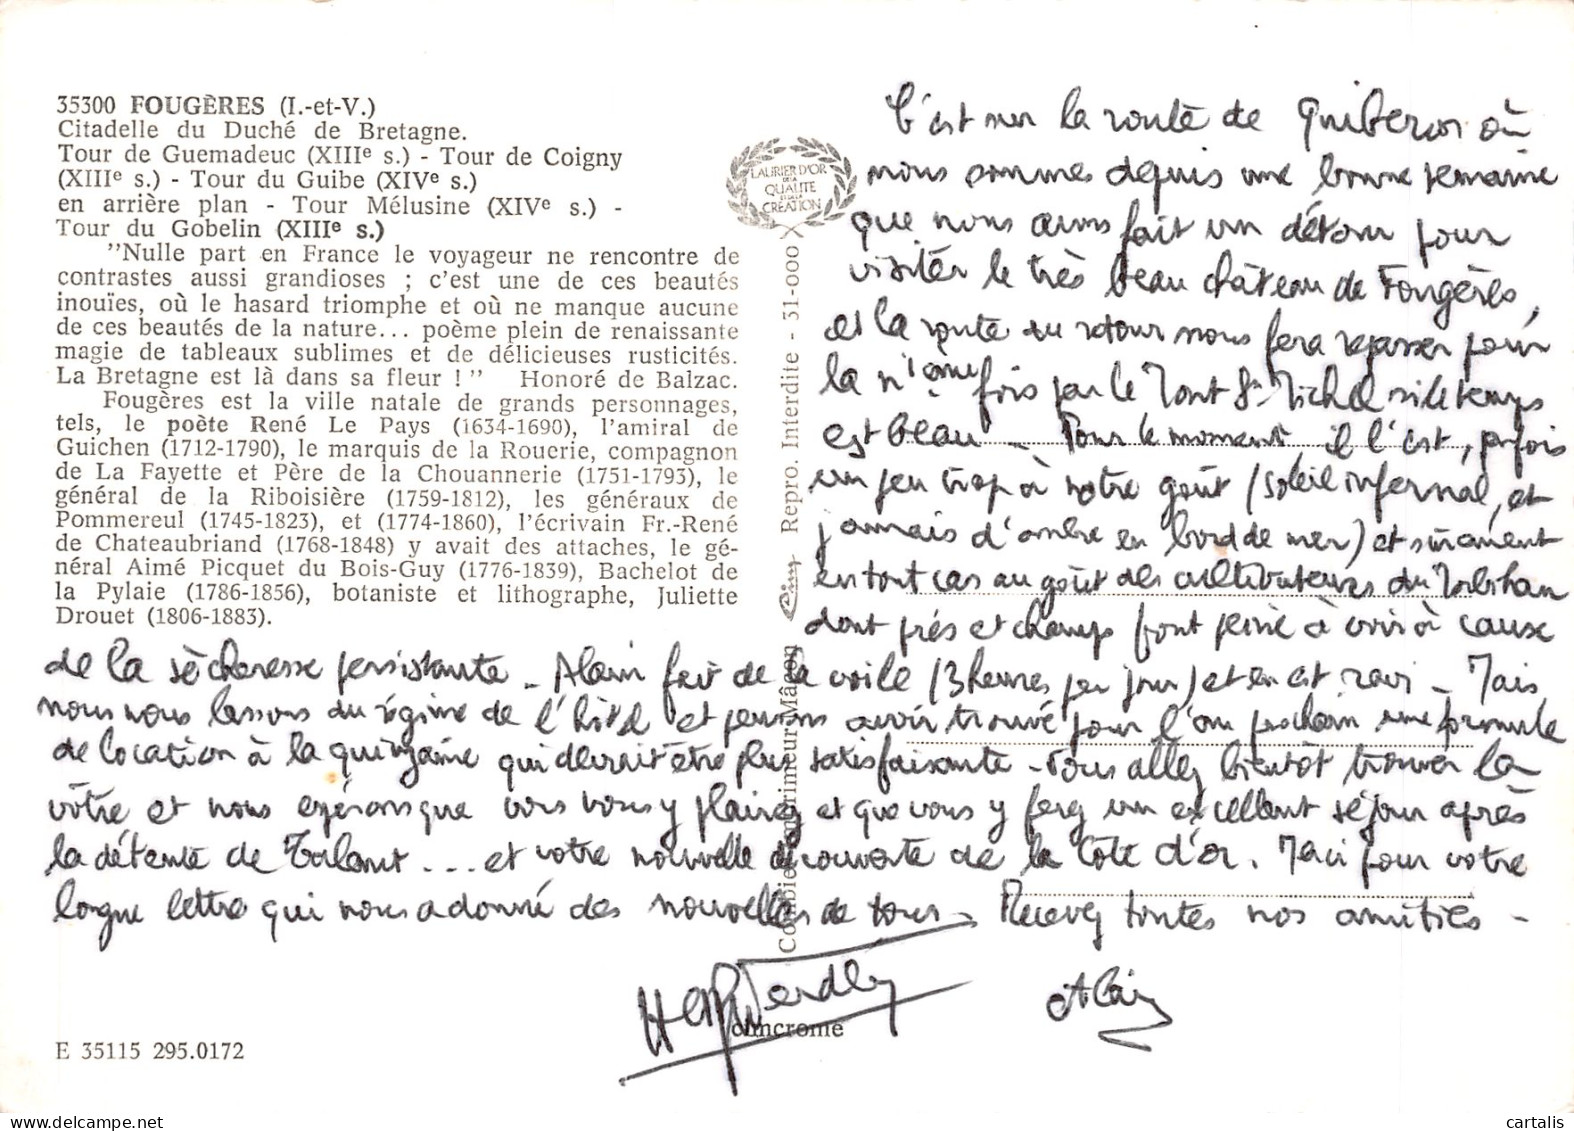 35300 FOUGÈRES (I.-et-V.)
Citadelle du Duché de Bretagne.
Tour de Guemadeuc (XIIIe s.) - Tour de Coigny
(XIIIe s.) - Tour du Guibe (XIVe s.)
en arrière plan - Tour Mélusine (XIVe s.) -
Tour du Gobelin (XIIIe s.)
"Nulle part en France le voyageur ne rencontre de
contrastes aussi grandioses ; c'est une de ces beautés
inouïes, où le hasard triomphe et où ne manque aucune
de ces beautés de la nature... poème plein de renaissante
magie de tableaux sublimes et de délicieuses rusticités.
La Bretagne est là dans sa fleur !" Honoré de Balzac.
Fougères est la ville natale de grands personnages,
tels, le poète René Le Pays (1634-1690), l'amiral de
Guichen (1712-1790), le marquis de la Rouerie, compagnon
de La Fayette et Père de la Chouannerie (1751-1793), le
général de la Riboisière (1759-1812), les généraux de
Pommereul (1745-1823), et (1774-1860), l'écrivain Fr.-René
de Chateaubriand (1768-1848) y avait des attaches, le gé-
néral Aimé Picquet du Bois-Guy (1776-1839), Bachelot de
la Pylaie (1786-1856), botaniste et lithographe, Juliette
Drouet (1806-1883).
LAURIER D'OR
DE LA
QUALITÉ
ET DE LA
CRÉATION
Combier Imprimeur Mâcon Cim Repro. Interdite - 31-000
C'est sur la route de Quiberon où
nous sommes depuis une bonne semaine
que nous avons fait un détour pour
visiter le très beau château de Fougères,
et la route du retour nous fera repasser pour
la nième fois par le Mont St Michel si le temps
est beau - Pour le moment, il l'est, parfois
un peu trop à notre goût (soleil infernal, et
jamais d'ombre en bord de mer) et sûrement
en tout cas au goût des cultivateurs du Morbihan
dont prés et champs font peine à voir à cause
de la sècheresse persistante - Alain fait de la voile (3 heures par jour) et en est ravi - Mais
nous nous lassons du régime de l'hôtel et pensons avoir trouvé pour l'an prochain une formule
de location à la quinzaine qui devrait être plus satisfaisante - Vous allez bientôt trouver la
vôtre et nous espérons que vous vous y plairez et que vous y ferez un excellent séjour après
la détente de Talant ... et votre nouvelle découverte de la Côte d'or. Merci pour votre
longue lettre qui nous a donné des nouvelles de tous - Recevez toutes nos amitiés -
Alain
E 35115 295.0172
cartalis.